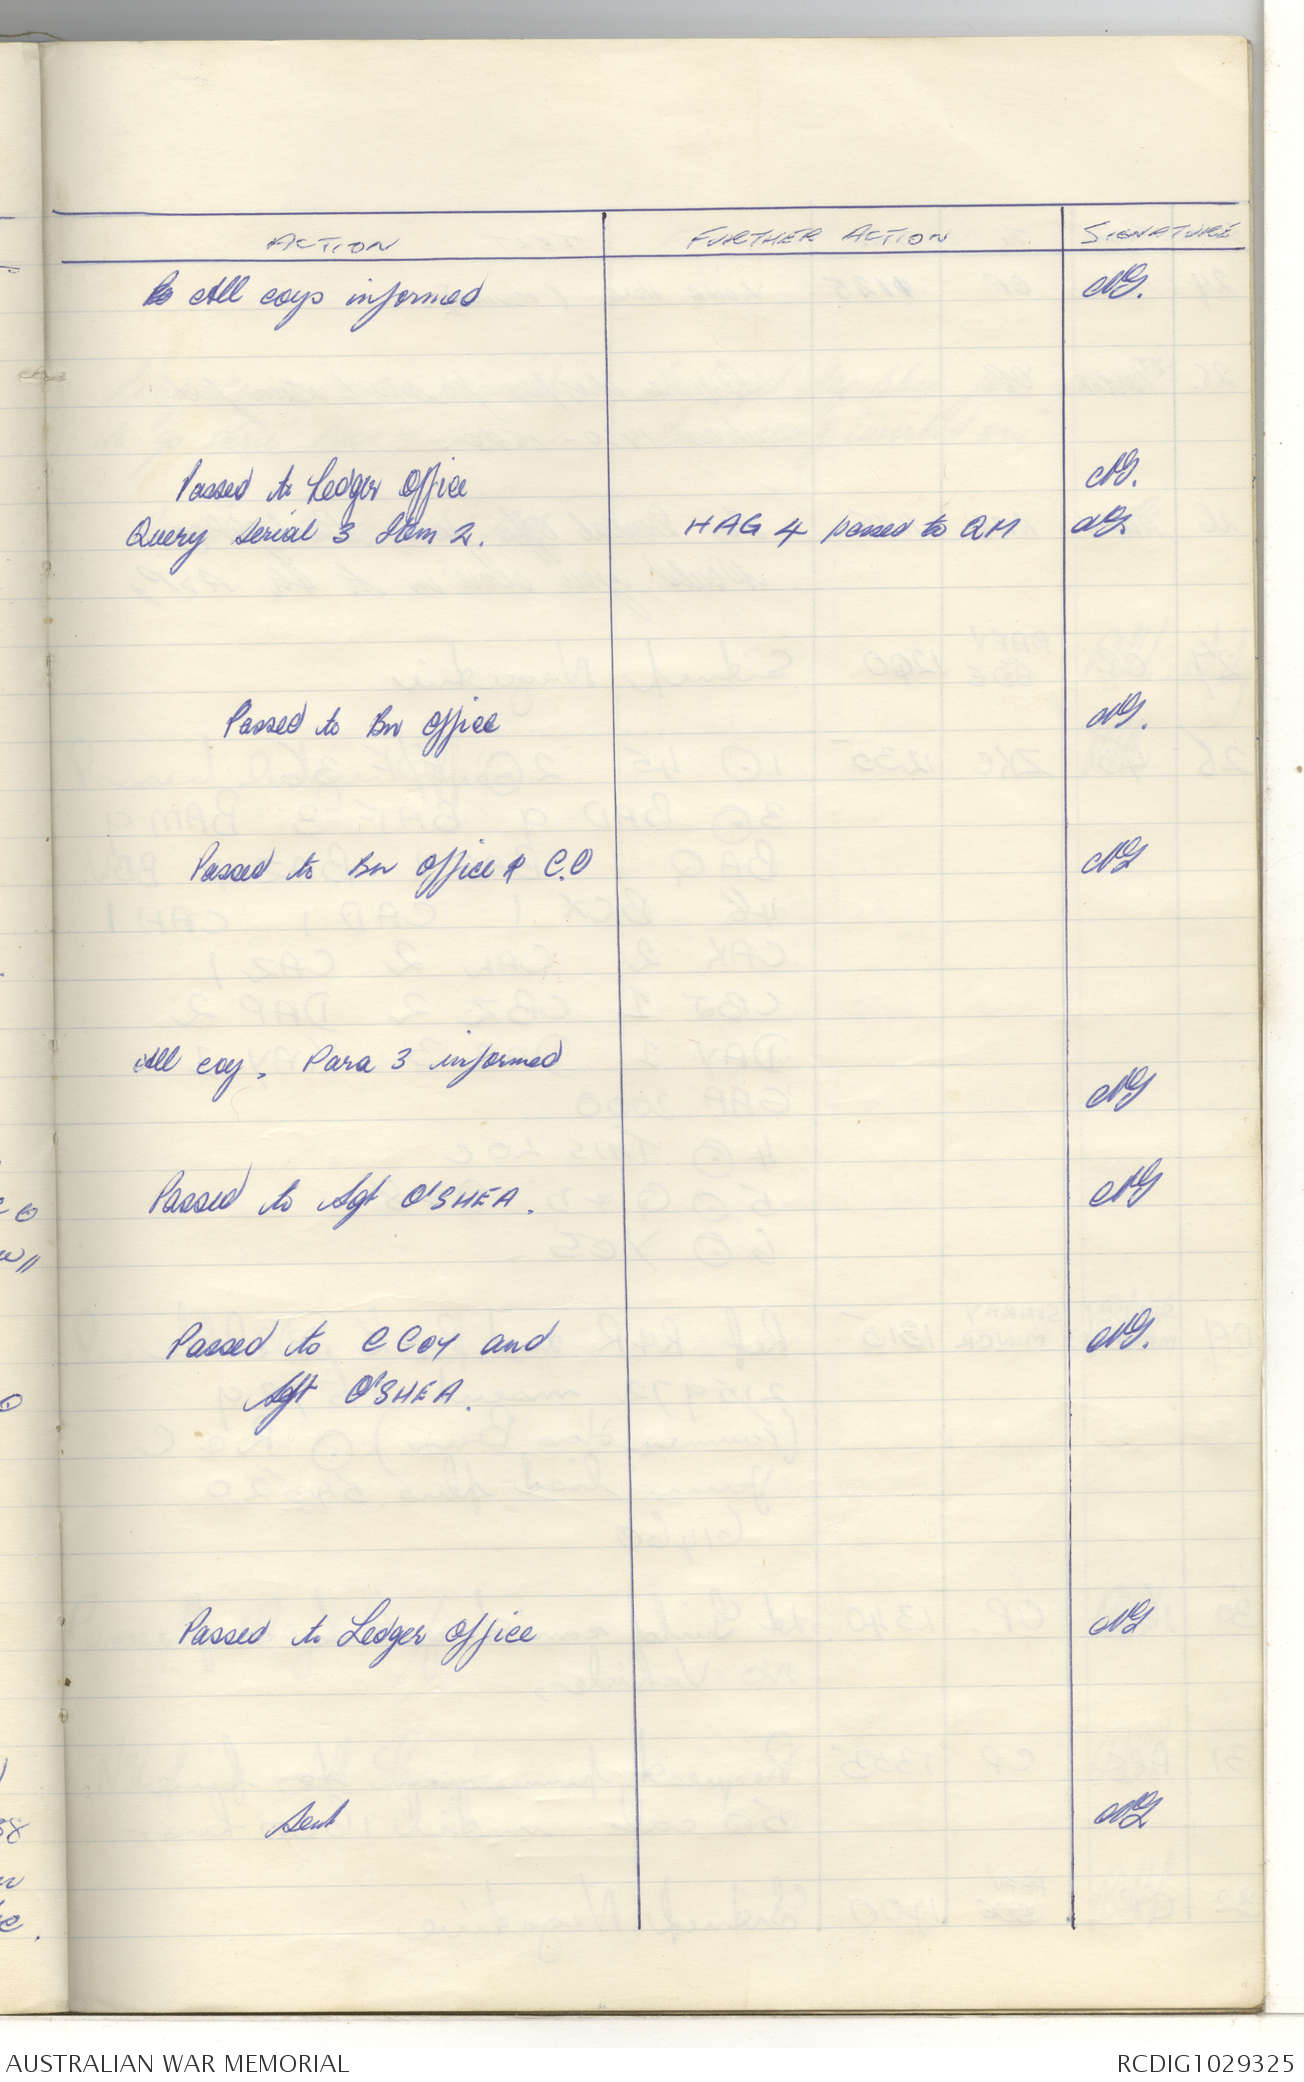 ACTION FURTHER ACTION SIGNATURE
All coys informed
Passed to Ledger Office
Query Serial 3 Item 2. HAG 4 passed to QM
Passed to Bn Office
Passed to Bn Office & C.O
All coy. Para 3 informed
Passed to Sgt O'SHEA.
Passed to C Coy and
Sgt O'SHEA.
Passed to Ledger Office
Sent
AUSTRALIAN WAR MEMORIAL RCDIG1029325